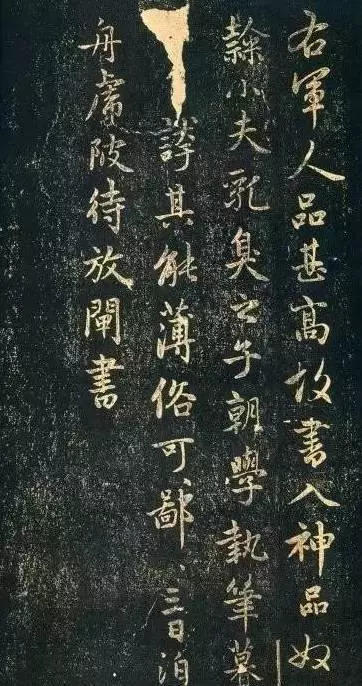 右軍人品甚高故書入神品奴
隸小夫乳臭之子朝學執筆暮
誇其能薄俗可鄙、三日泊
舟虜陂待放閘書